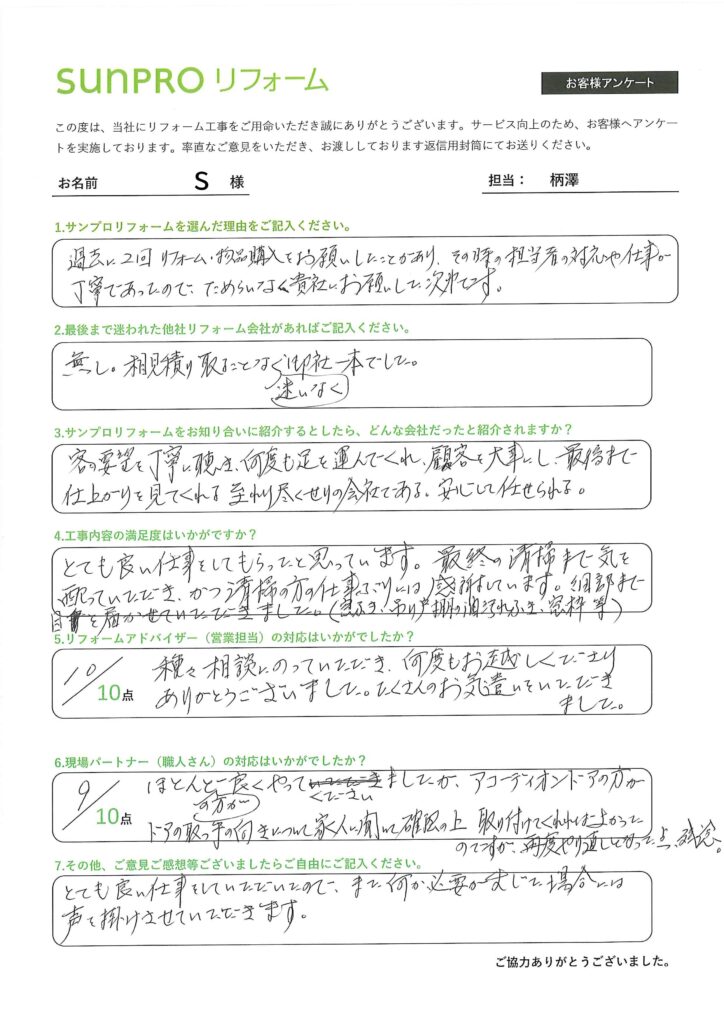 SUNPRO リフォーム
お客様アンケート
この度は、当社にリフォーム工事をご用命いただき誠にありがとうございます。サービス向上のため、お客様へアンケー
トを実施しております。率直なご意見をいただき、お渡ししております返信用封筒にてお送りください。
お名前 S 様 担当： 柄澤
1.サンプロリフォームを選んだ理由をご記入ください。
過去に2回リフォーム・物品購入をお願いしたことがあり、その時の担当者の対応や仕事が
丁寧であったので、ためらいなく貴社にお願いした次第です。
2.最後まで迷われた他社リフォーム会社があればご記入ください。
無し。相見積り取ることなく御社一本でした。
迷いなく
3.サンプロリフォームをお知り合いに紹介するとしたら、どんな会社だったと紹介されますか？
客の要望を丁寧に聴き、何度も足を運んでくれ、顧客を大事にし、最後まで
仕上がりを見てくれる至れり尽くせりの会社である。安心して任せられる。
4.工事内容の満足度はいかがですか？
とても良い仕事をしてもらったと思っています。最終の清掃まで気を
配っていただき、かつ清掃の方の仕事ぶりには感謝しています。細部まで
目を届かせていただきました。（窓ふき、吊り戸棚の油汚れふき、窓枠等）
5.リフォームアドバイザー（営業担当）の対応はいかがでしたか？
10/10点
種々相談にのっていただき、何度もお越しくださり
ありがとうございました。たくさんのお気遣いをいただき
ました。
6.現場パートナー（職人さん）の対応はいかがでしたか？
9/10点
ほとんどの方が良くやってくださいましたが、アコーディオンドアの方が
ドアの取っ手の向きについて家人に聞いて確認の上 取り付けてくれれば良かった
のですが、再度やり直しとなった点、残念。
7.その他、ご意見ご感想等ございましたらご自由にご記入ください。
とても良い仕事をしていただいたので、また何か必要が生じた場合には
声を掛けさせていただきます。
ご協力ありがとうございました。